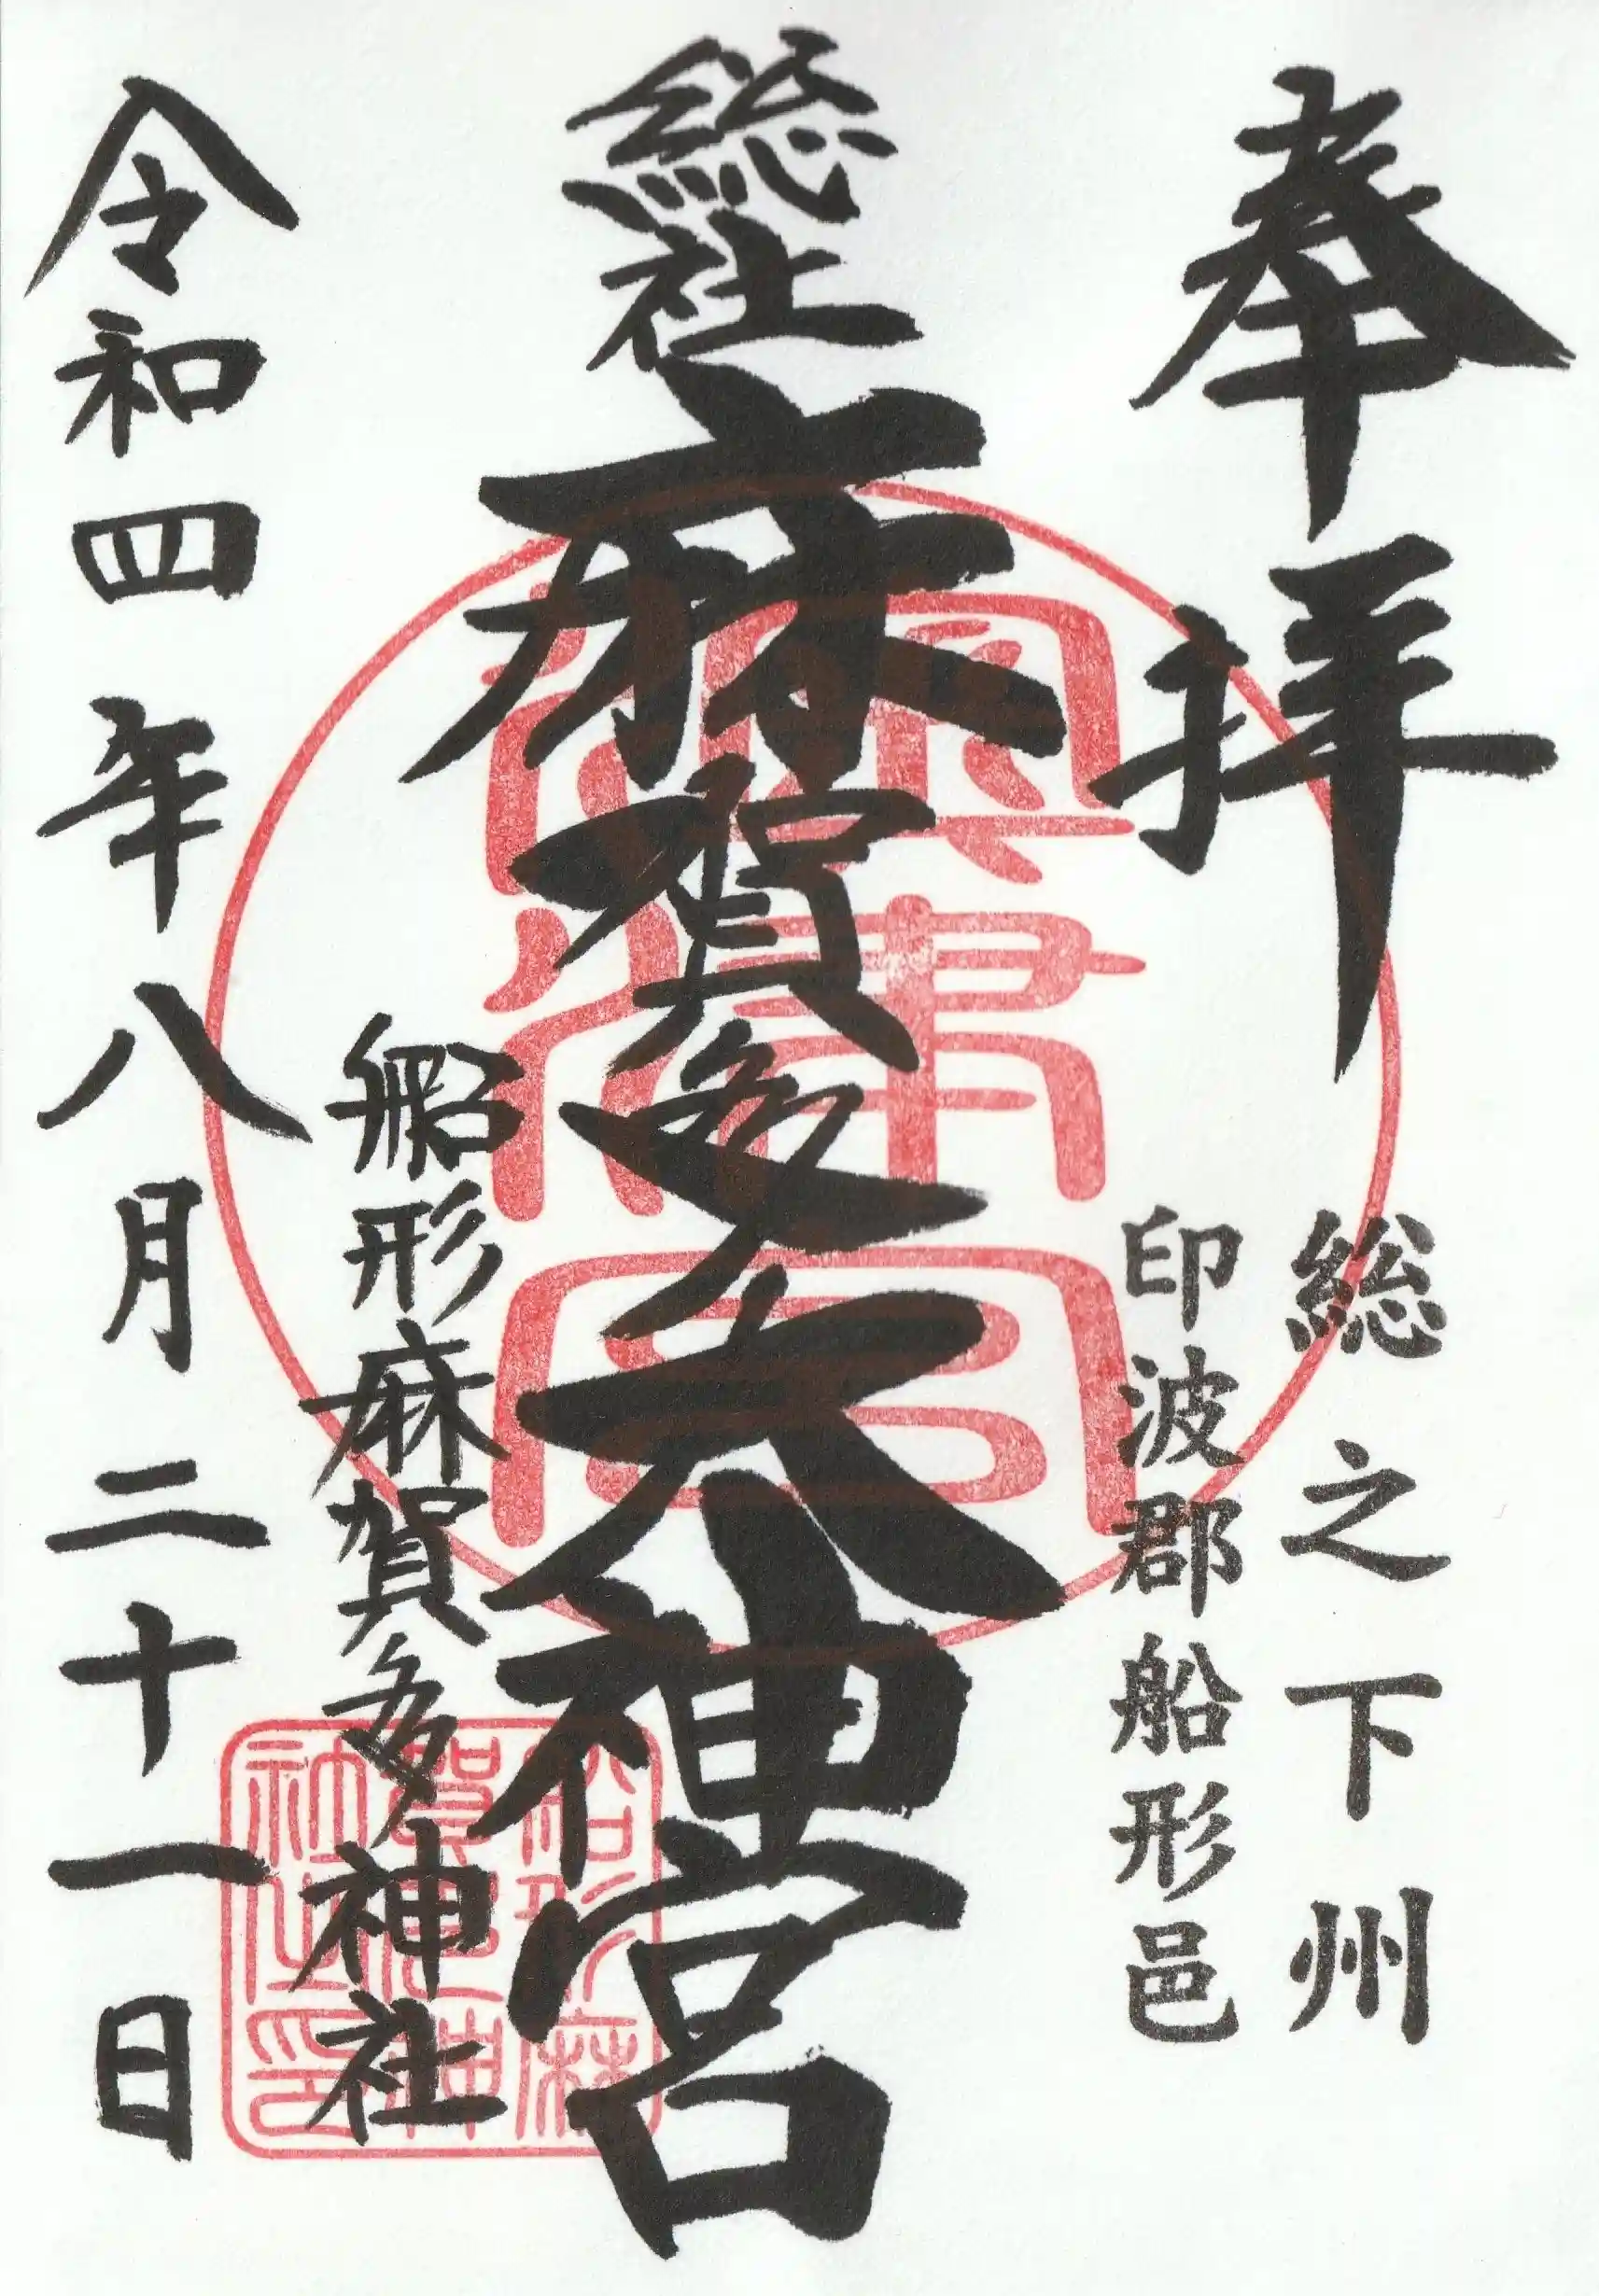 奉拝
総之下州
印波郡船形邑
総社麻賀多大神宮
船形麻賀多神社
令和四年八月二十一日